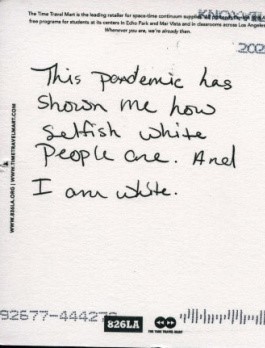 The Time Travel Mart is the leading retailer for space-time continuum
free programs for students at its centers in Echo Park and Mar Vista and in classrooms across Los Angeles
Whenever you are, we're already then.
This pandemic has
shown me how
selfish white
people are. And
I am white.
WWW.826LA.ORG | WWW.TIMETRAVELMART.COM
92677-4442
826LA
THE TIME TRAVEL MART